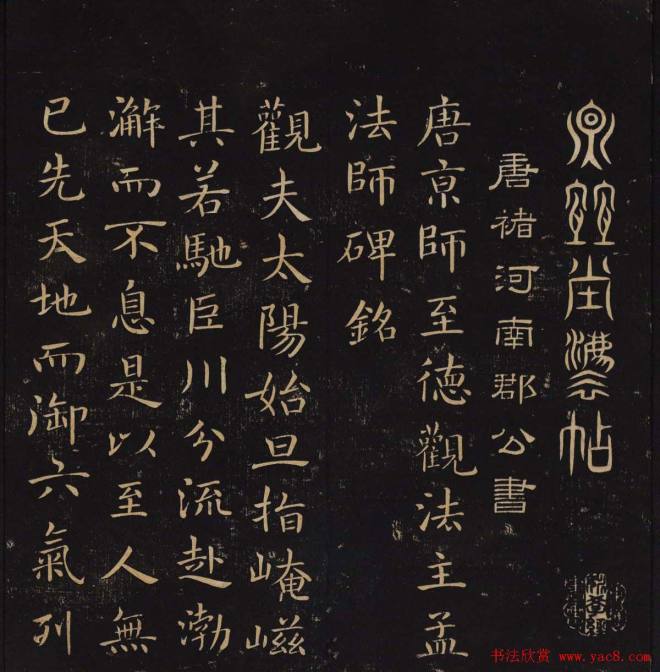 堂灋帖
唐褚河南郡公書
唐亰師至德觀法主孟
法師碑銘
觀夫太陽始旦指崦嵫
其若馳臣川分流赴渤
澥而不息是以至人無
已先天地而御六氣列
书法欣赏 www.yac8.com